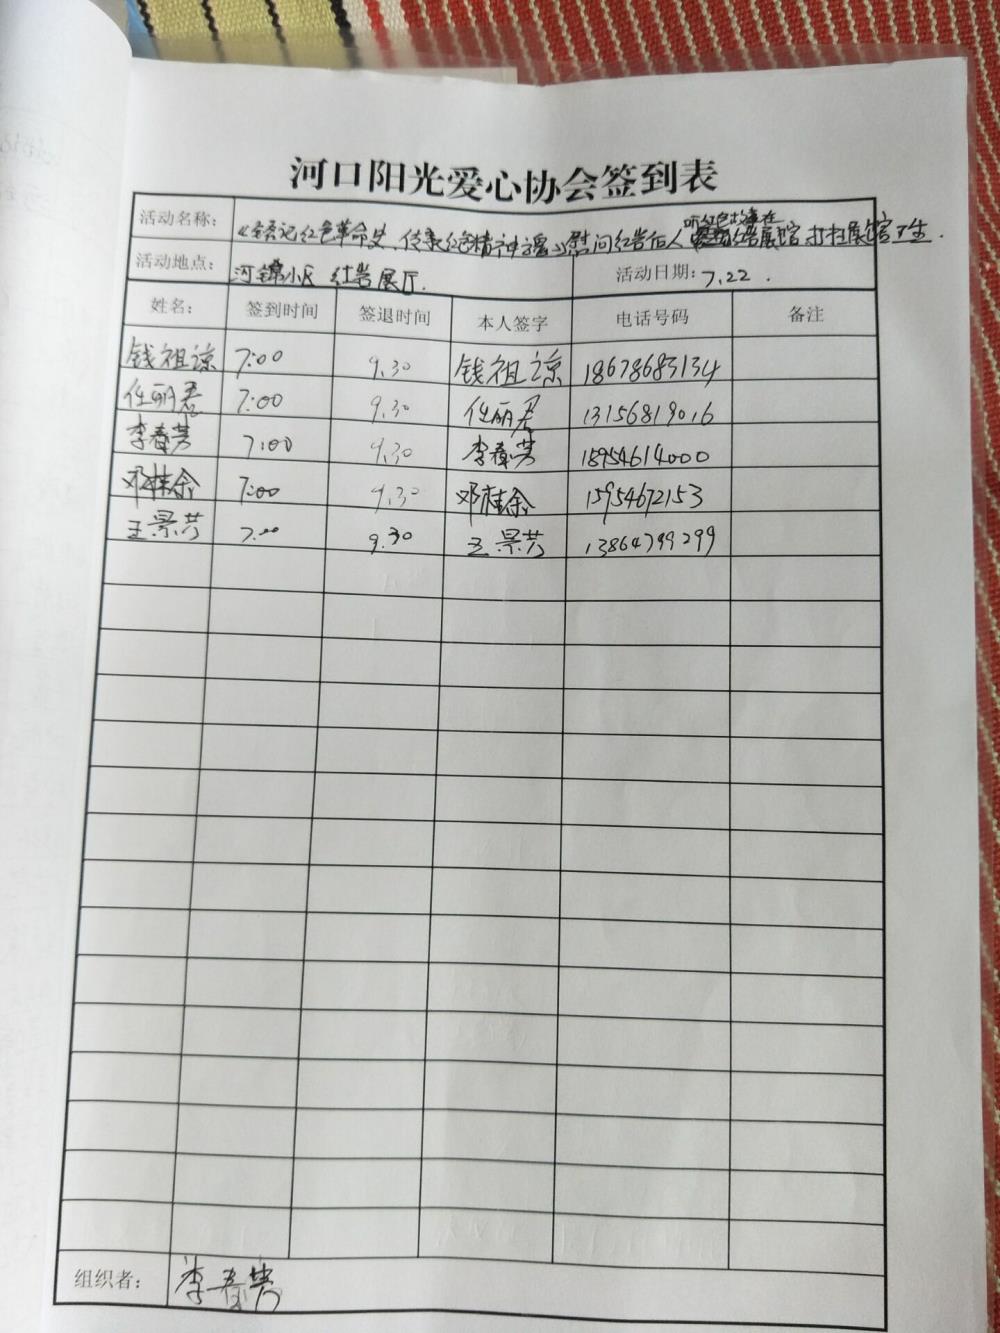 河口阳光爱心协会签到表
活动名称: 《铭记红色革命史、传承红色精神魂》慰问红岩后人 听红色故事在 展馆 打扫展馆卫生.
活动地点: 河锦小区 红岩展厅. 活动日期: 7.22.
姓名: 签到时间 签退时间 本人签字 电话号码 备注
钱祖谅 7:00 9.30 钱祖谅 18678683134
任丽君 7:00 9.30 任丽君 13156819016
李春芳 7:00 9.30 李春芳 18954614000
邓桂余 7:00 9.30 邓桂余 15954672153
王景芳 7.00 9.30 王景芳 13864799299
组织者: 李春芳